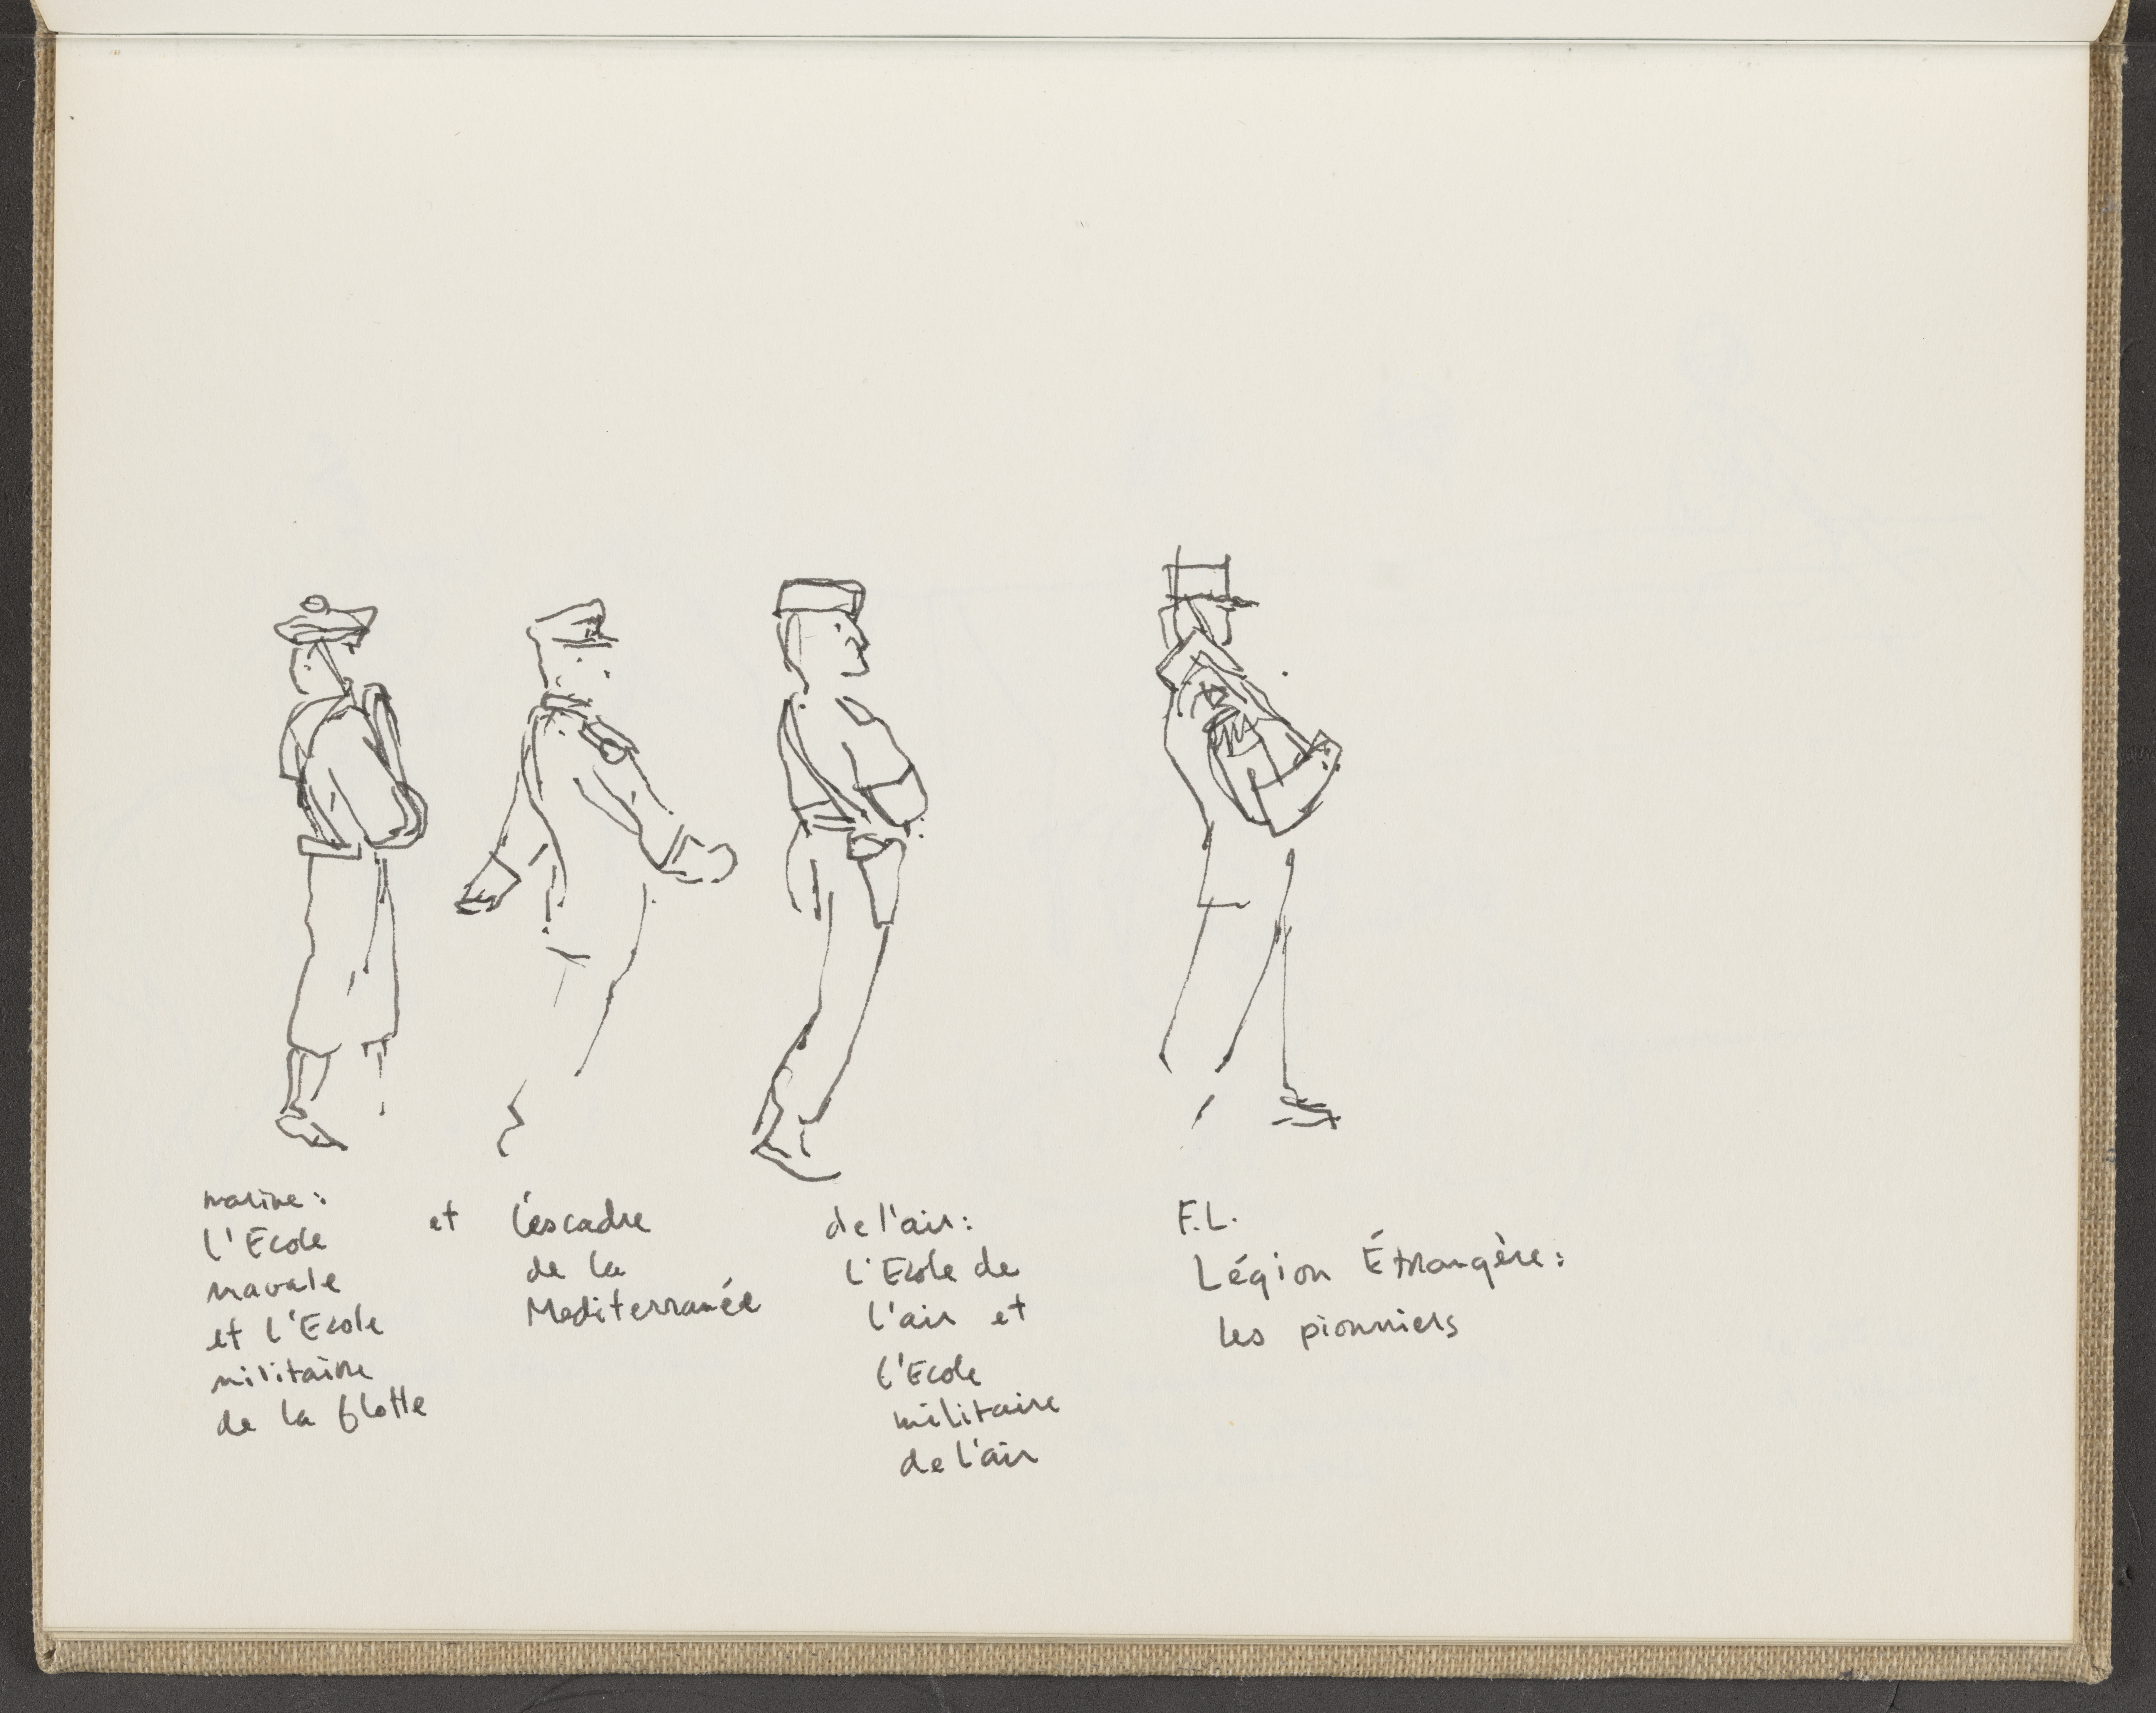 marine:
l'Ecole
navale
et l'Ecole
militaire
de la flotte
et l'éscadre
de la
Mediterranée
de l'air:
L'Ecole de
l'air et
l'Ecole
militaire
de l'air
F.L.
Légion Étrangère:
les pionniers